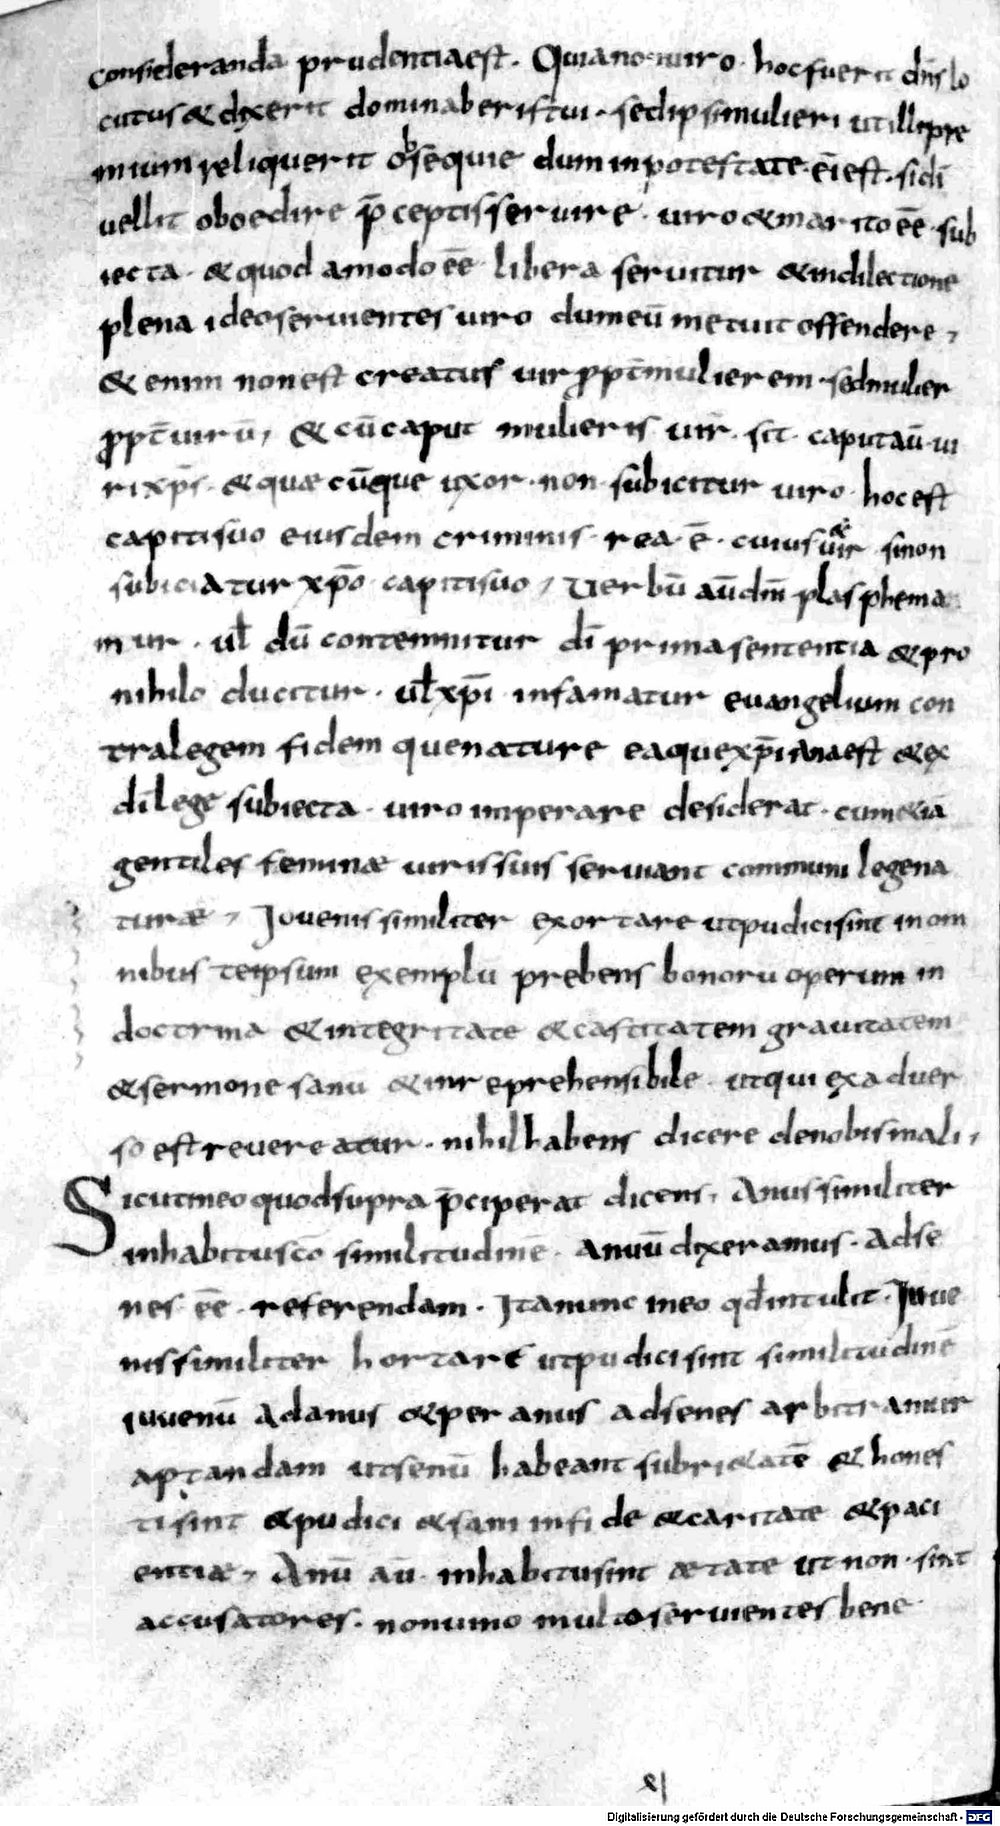 consideranda prudentiaest. Quianonuiro. hocfuerit dn̄s lo
cutus & dixerit dominaberistui. sedipsimulieri utillipre
mium reliquerit obsequie dum inpotestate. ei est. sidī
uellit oboedire p̄ceptisseruire. uiro & marito eē. sub
iecta. & quod amodo eē. libera seruitur & indilectione
plena ideoseruientes uiro dumeū metuit offendere,
& enim nonest creatus uir ꝓpt̄mulierem. sedmulier
ꝓpt̄uirū, & cūcaput mulieris uir. sit. caputaū. ui
rixp̄s. & quæcūque uxor. non. subicitur uiro. hocest
capitisuo eiusdem criminis. rea. ē. cuius & uir sinon
subiciatur xp̄o capitisuo, Uerbū aūdn̄i plasphema
mur. ul̄ dū contemnitur dī primasententia & pro
nihilo ducitur. ul̄xp̄i infamatur euangelium con
tralegem fidem quenature eaquexp̄ianaest & ex
dīlege subiecta. uiro imperare desiderat. cum&iā
gentiles feminæ uirissuis seruiant communi legena
turæ, Iouenissimiliter exortare utpudicisint inom
nibus teipsum exemplu prebens bonoru operum in
doctrina & integritate & castitatem grauitatem
& sermone sanu & inreprehensibile. utqui exaduer
so estreuereatur. nihilhabens dicere denobismali,
Sicutineoquodsupra p̄ciperat dicens, Anussimiliter
inhabituscō similitudinē. anuū dixeramus. adse
nes eē. referendam. Itanunc ineo qd̄intulit. Iuue
nissimiliter hortare utpudicisint similitudinē
iuuenū adanus & per anus adsenes arbitramur
aptandam utsenū habeant subri&atē & hones
tisint & pudici & sani infide & caritate & paci
entiæ, Anū aū. inhabitusint ætate ut non. sint
accusatores. nonuino multoseruientes bene.
xı
Digitalisierung gefördert durch die Deutsche Forschungsgemeinschaft - DFG